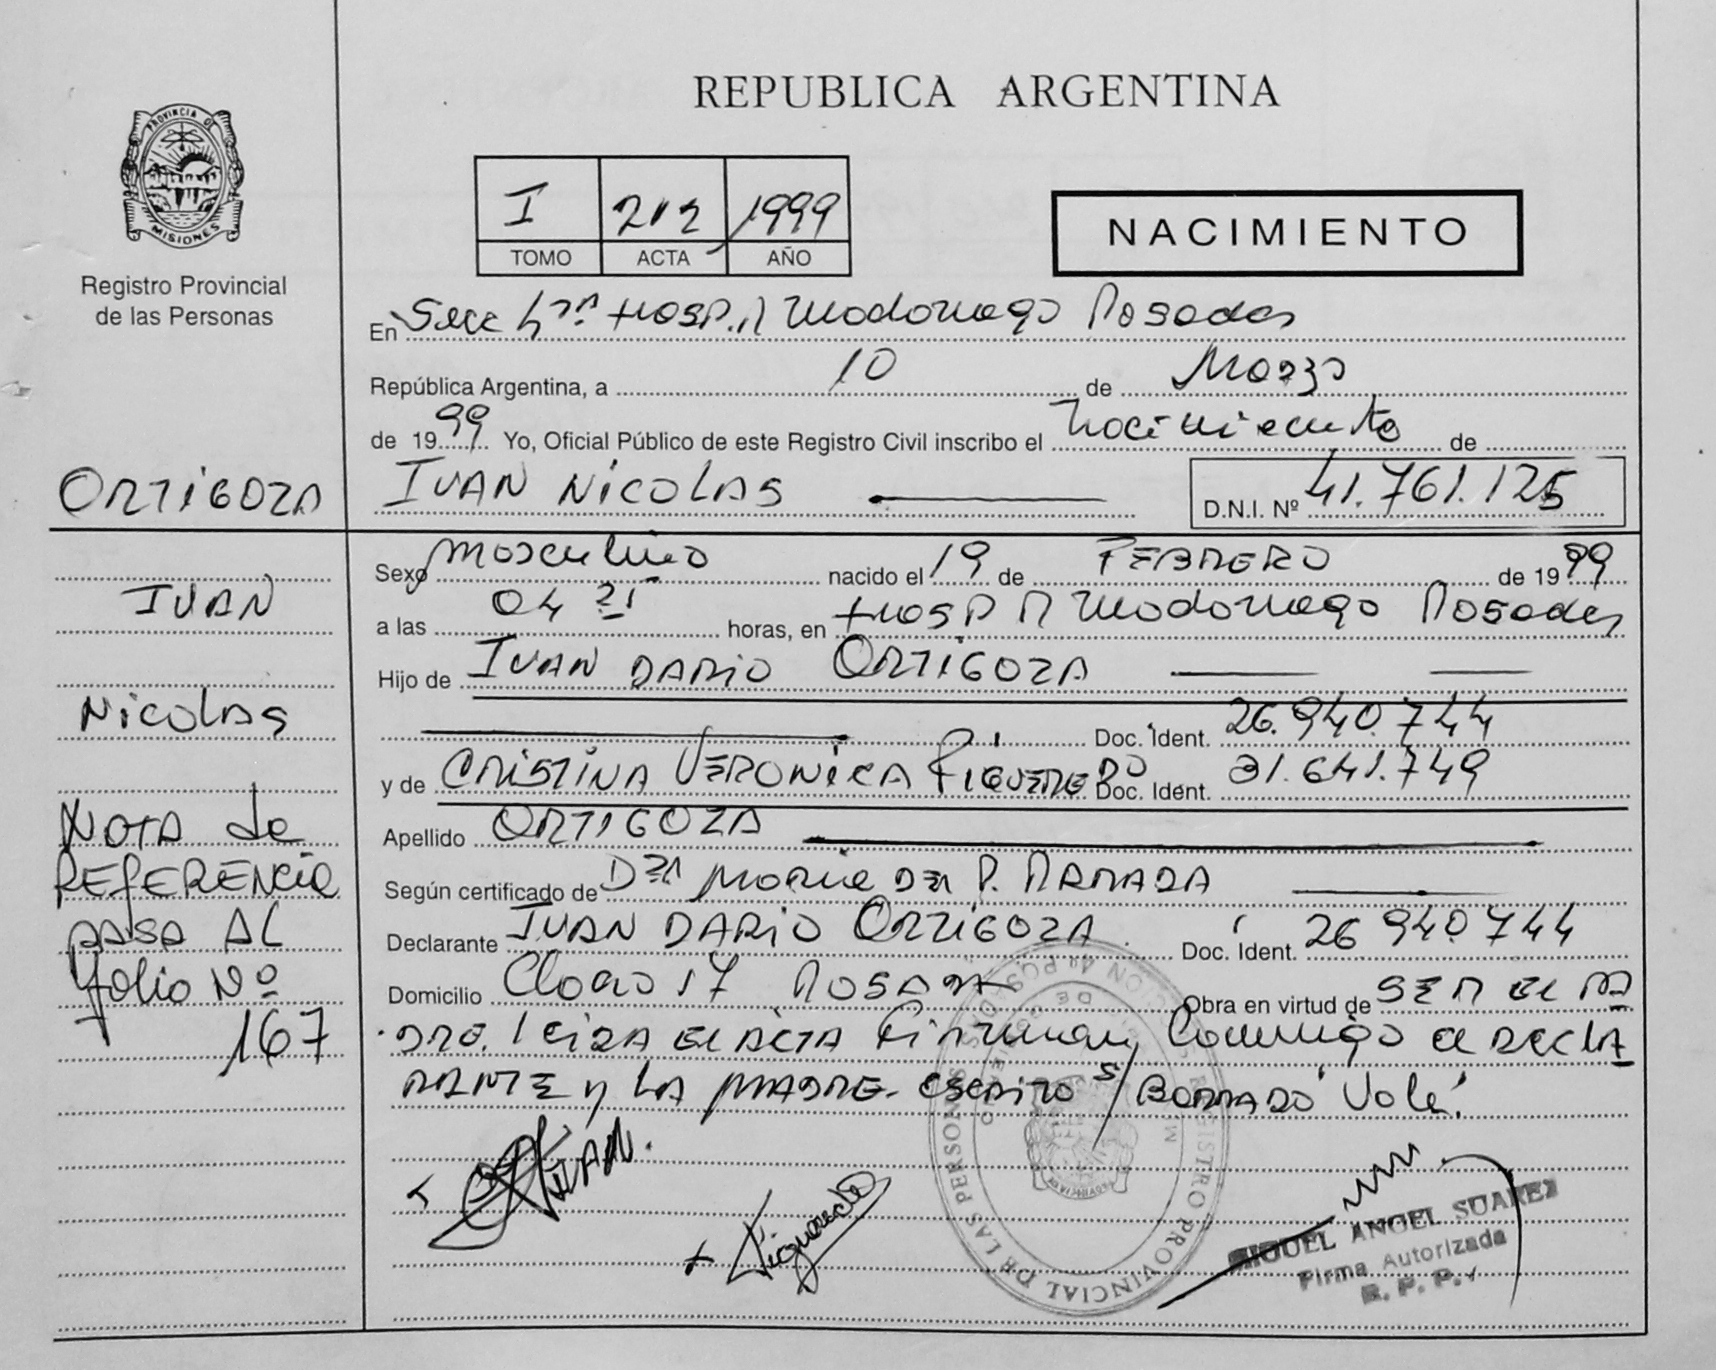 REPUBLICA ARGENTINA
PROVINCIA DE
MISIONES
Registro Provincial
de las Personas
I 212 1999
TOMO ACTA AÑO
NACIMIENTO
En Secc Hosp. R Madariaga Posadas
República Argentina, a 10 de Marzo
de 1999 Yo, Oficial Público de este Registro Civil inscribo el nacimiento de
IVAN NICOLAS D.N.I. Nº 41.761.125
ORTIGOZA
IVAN
NICOLAS
NOTA de
REFERENCIA
PASA AL
folio Nº
167
Sexo masculino nacido el 19 de FEBRERO de 1999
a las 04 21 horas, en Hosp R Madariaga Posadas
Hijo de IVAN DARIO ORTIGOZA
Doc. Ident. 26.940.744
y de CRISTINA VERONICA FIGUEREDO Doc. Ident. 31.641.749
Apellido ORTIGOZA
Según certificado de DRA MARIA DEL P. ARMADA
Declarante IVAN DARIO ORTIGOZA Doc. Ident. 26 940.744
Domicilio Chaco 17 POSADAS Obra en virtud de SER EL PA
DRE. LEIDA EL ACTA Firman Conmigo el DECLA
RANTE y LA MADRE. escrito s/ BORRADO Vale.
IVAN.
Figueredo
REGISTRO PROVINCIAL DE LAS PERSONAS
MIGUEL ANGEL SUAREZ
Firma Autorizada
R. P. P.